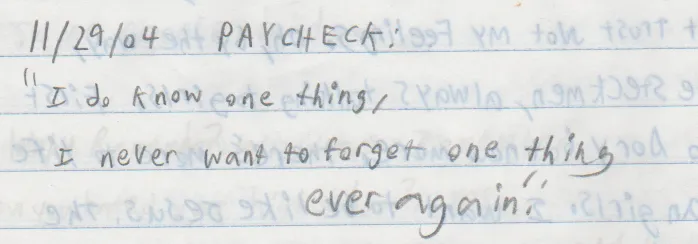 11/29/04 PAYCHECK:
"I do know one thing,
I never want to forget one thing
ever again."